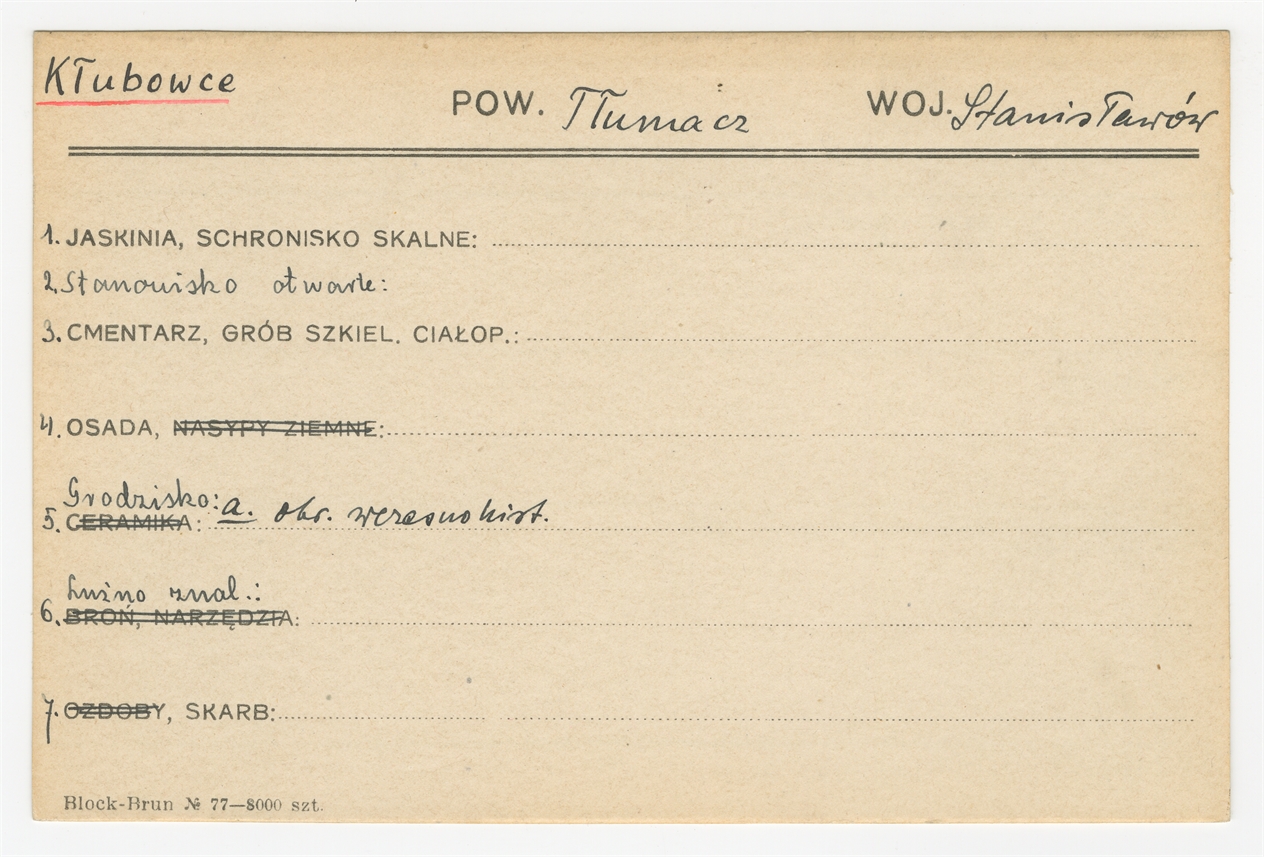 Kłubowce
POW. Tłumacz WOJ. Stanisławów
1. JASKINIA, SCHRONISKO SKALNE:
2. Stanowisko otwarte:
3. CMENTARZ, GRÓB SZKIEL. CIAŁOP.:
4. OSADA, NASYPY ZIEMNE:
Grodzisko: a. okr. wczesnohist.
5. CERAMIKA:
Luźno znal.:
6. BROŃ, NARZĘDZIA:
7. OZDOBY, SKARB:
Block-Brun № 77—8000 szt.